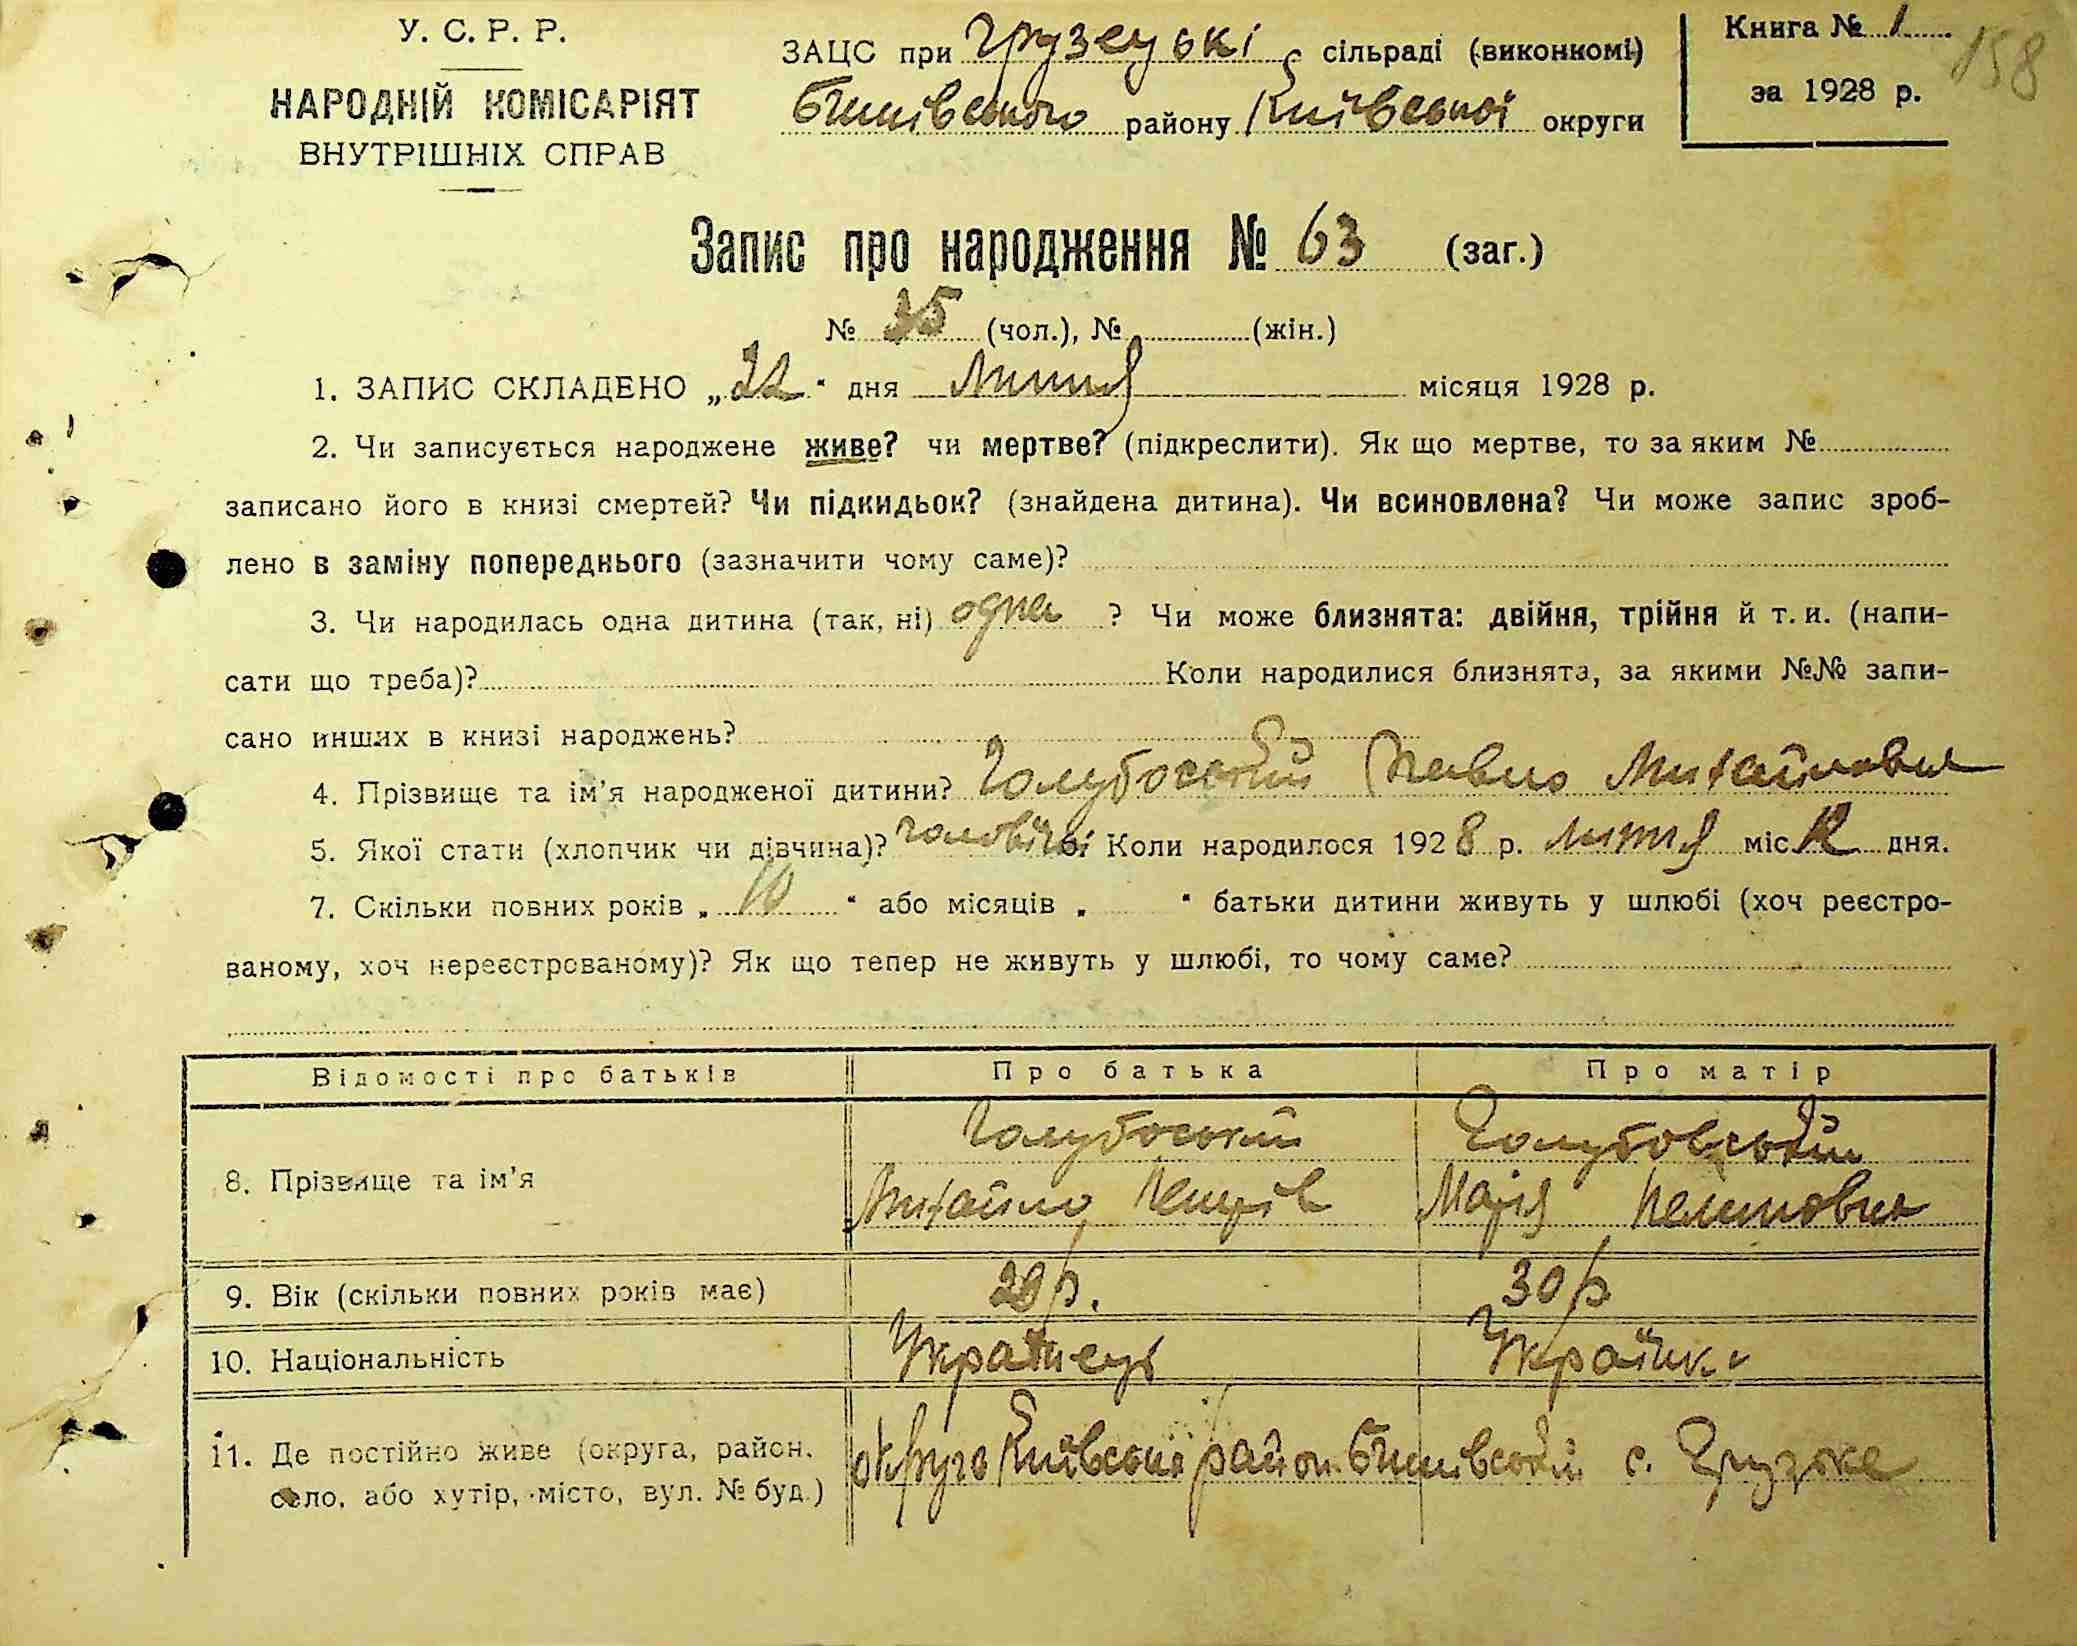 У. С. Р. Р.
НАРОДНІЙ КОМІСАРІЯТ
ВНУТРІШНІХ СПРАВ
ЗАЦС при Грузецькі сільраді (виконкомі)
Бишівського району Київської округи
Книга № 1
за 1928 р.
158
Запис про народження № 63 (заг.)
№ 35 (чол.), № (жін.)
1. ЗАПИС СКЛАДЕНО „22“ дня Липня місяця 1928 р.
2. Чи записується народжене живе? чи мертве? (підкреслити). Як що мертве, то за яким №
записано його в книзі смертей? Чи підкидьок? (знайдена дитина). Чи всиновлена? Чи може запис зроб-
лено в заміну попереднього (зазначити чому саме)?
3. Чи народилась одна дитина (так, ні) одна ? Чи може близнята: двійня, трійня й т. и. (напи-
сати що треба)? Коли народилися близнята, за якими №№ запи-
сано инших в книзі народжень?
4. Прізвище та ім’я народженої дитини? Голубоський Павло Михайлович
5. Якої стати (хлопчик чи дівчина)? чоловічої Коли народилося 1928 р. липня міс. 12 дня.
7. Скільки повних років „ 10 “ або місяців „ “ батьки дитини живуть у шлюбі (хоч реєстро-
ваному, хоч нереєстрованому)? Як що тепер не живуть у шлюбі, то чому саме?
Відомості про батьків Про батька Про матір
8. Прізвище та ім’я
Голубоський Голубовський
Михайло Марія
9. Вік (скільки повних років має) 28 р. 30 р
10. Національність Українець Українка
11. Де постійно живе (округа, район,
село, або хутір, місто, вул. № буд.)
округа Київська район Бишівський с. Грузьке